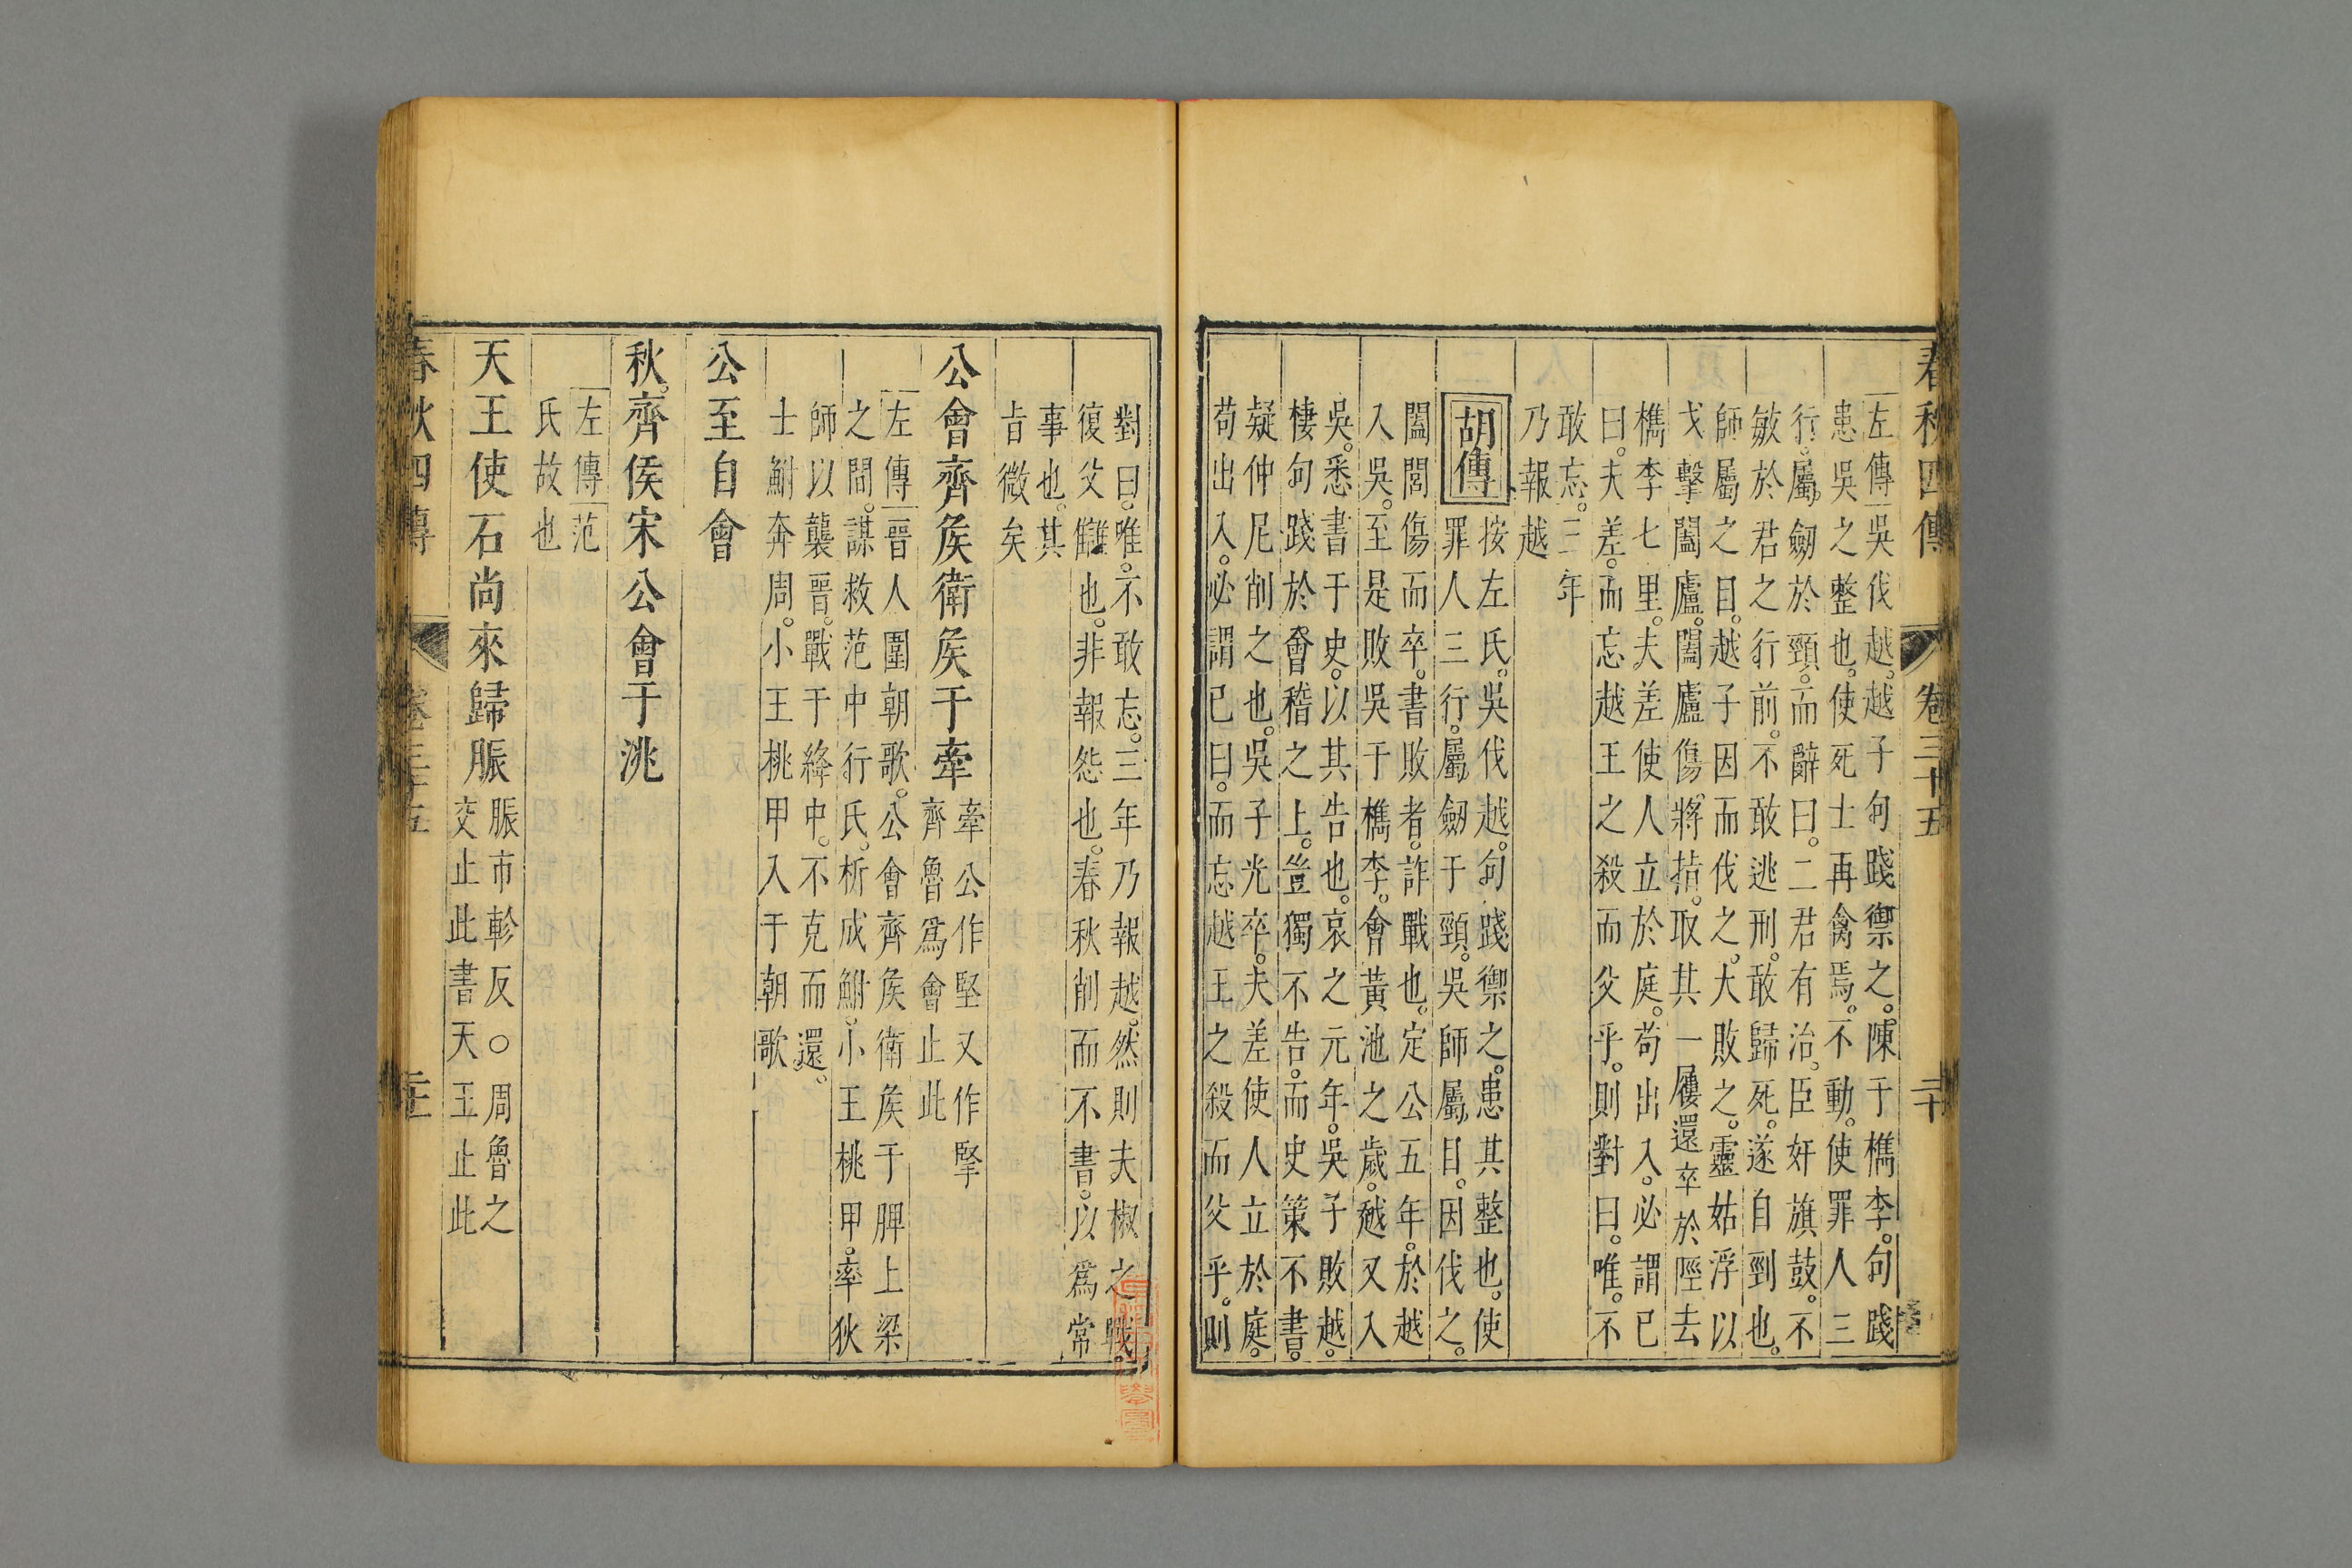 春秋四傳 卷三十五 二十
左傳吳伐越。越子句踐禦之。陳于檇李。句踐
患吳之整也。使死士再禽焉。不動。使罪人三
行。屬劒於頸。而辭曰。二君有治。臣奸旗鼓。不
敏於君之行前。不敢逃刑。敢歸死。遂自剄也。
師屬之目。越子因而伐之。大敗之。靈姑浮以
戈擊闔廬。闔廬傷將指。取其一屨還卒於陘去
檇李七里。夫差使人立於庭。苟出入。必謂已
曰。夫差。而忘越王之殺而父乎。則對曰。唯。不
敢忘。三年
乃報越
胡傳
按左氏。吳伐越。句踐禦之。患其整也。使
罪人三行。屬劒于頸。吳師屬目。因伐之。
闔閭傷而卒。書敗者。詐戰也。定公五年。於越
入吳。至是敗吳于檇李。會黃池之歲。越又入
吳。悉書于史。以其告也。哀之元年。吳子敗越。
棲句踐於會稽之上。豈獨不告。而史策不書。
疑仲尼削之也。吳子光卒。夫差使人立於庭。
苟出入。必謂已曰。而忘越王之殺而父乎。則
對曰。唯。不敢忘。三年乃報越。然則夫椒之戰。
復父讎也。非報怨也。春秋削而不書。以爲常
事也。其
旨微矣
公會齊矦衛矦于牽
牽公作堅又作掔
齊魯爲會止此
左傳晉人圍朝歌。公會齊矦衛矦于脾上梁
之間。謀救范中行氏。析成鮒。小王桃甲。率狄
師以襲晉。戰于絳中。不克而還。
士鮒奔周。小王桃甲入于朝歌
公至自會
秋。齊侯宋公會于洮
左傳范
氏故也
天王使石尚來歸脤
脤市軫反○周魯之
交止此書天王止此
春秋四傳 卷三十五